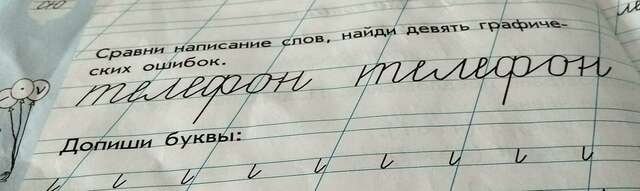 Сравни написание слов, найди девять графиче-
ских ошибок.
телефон телефон
Допиши буквы: